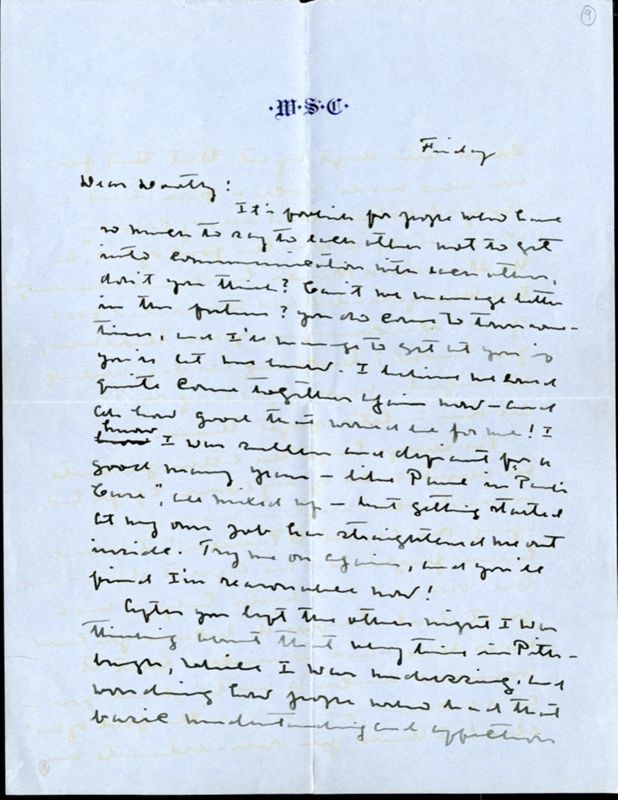 9
·W·S·C·
Friday
Dear Dorothy:
It's foolish for people who have
so much to say to each other not to get
into communication with each other,
don't you think? Can't we manage better
in the future? You do come to town some-
times, and I'll manage to get at you if
you'll let me know. I believe we could
quite come together again now – and
oh how good that would be for me! I
know I was sullen and defiant for a
good many years – like Paul in "Paul's
Case", all mixed up – but getting started
at my own job has straightened me out
inside. Try me on again, and you'll
find I'm reasonable now!
After you left the other night I was
thinking about that very time in Pitts-
burgh, while I was undressing, and
wondering how people who had that
basic understanding and affection